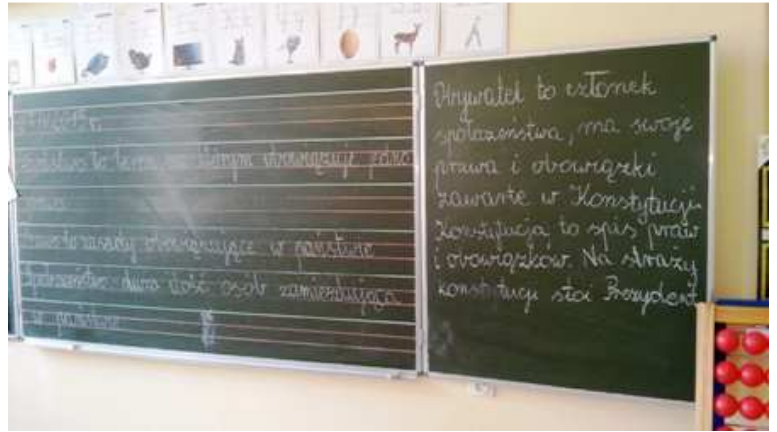 Państwo to teren, na którym obowiązuje jedno
prawo.
Prawo to zasady obowiązujące w państwie
Społeczeństwo duża ilość osób zamieszkująca
w państwie
Obywatel to członek
społeczeństwa, ma swoje
prawa i obowiązki
zawarte w Konstytucji
Konstytucja to spis praw
i obowiązków. Na straży
konstytucji stoi Prezydent